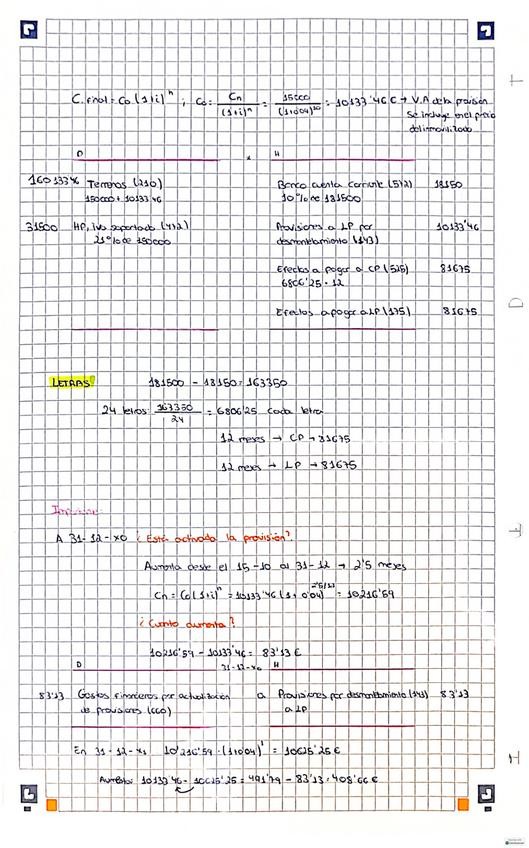 C.final = Co (1+i)^n ; Co = Cn / (1+i)^n = 15000 / (1+0'04)^10 = 10133'46 € → V.A de la provisión
Se incluye en el precio
del inmovilizado
D x H
160133'46 Terrenos (210) Banco cuenta corriente (572) 18150
150000 + 10133'46 10% de 181500
31500 HP, iva soportado (472) Provisiones a LP por 10133'46
21% de 150000 desmantelamiento (143)
Efectos a pagar a CP (525) 81675
6806'25 · 12
Efectos a pagar a LP (175) 81675
LETRAS 181500 - 18150 = 163350
24 letras: 163350 / 24 = 6806'25 cada letra
12 meses → CP → 81675
12 meses → LP → 81675
A 31-12-x0 ¿Está activada la provisión?
Aumenta desde el 15-10 al 31-12 → 2'5 meses
Cn = Co (1+i)^n = 10133'46 (1+0'04)^2'5/12 = 10216'59
¿Cuánto aumenta?
10216'59 - 10133'46 = 83'13 €
D 31-12-x0 H
83'13 Gastos financieros por actualización a Provisiones por desmantelamiento (143) 83'13
de provisiones (660) a LP
En 31-12-x1 10'216'59 · (1+0'04)^1 = 10625'25 €
Aumento: 10133'46 - 10625'25 = 491'79 - 83'13 = 408'66 €